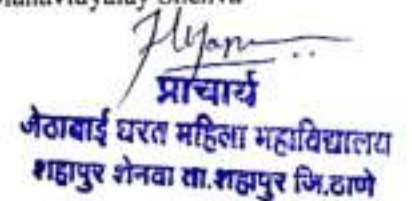 Mahavidyalay Shenva
प्राचार्य
जेठाबाई घरत महिला महाविद्यालय
शहापुर शेनवा ता.शहापुर जि.ठाणे